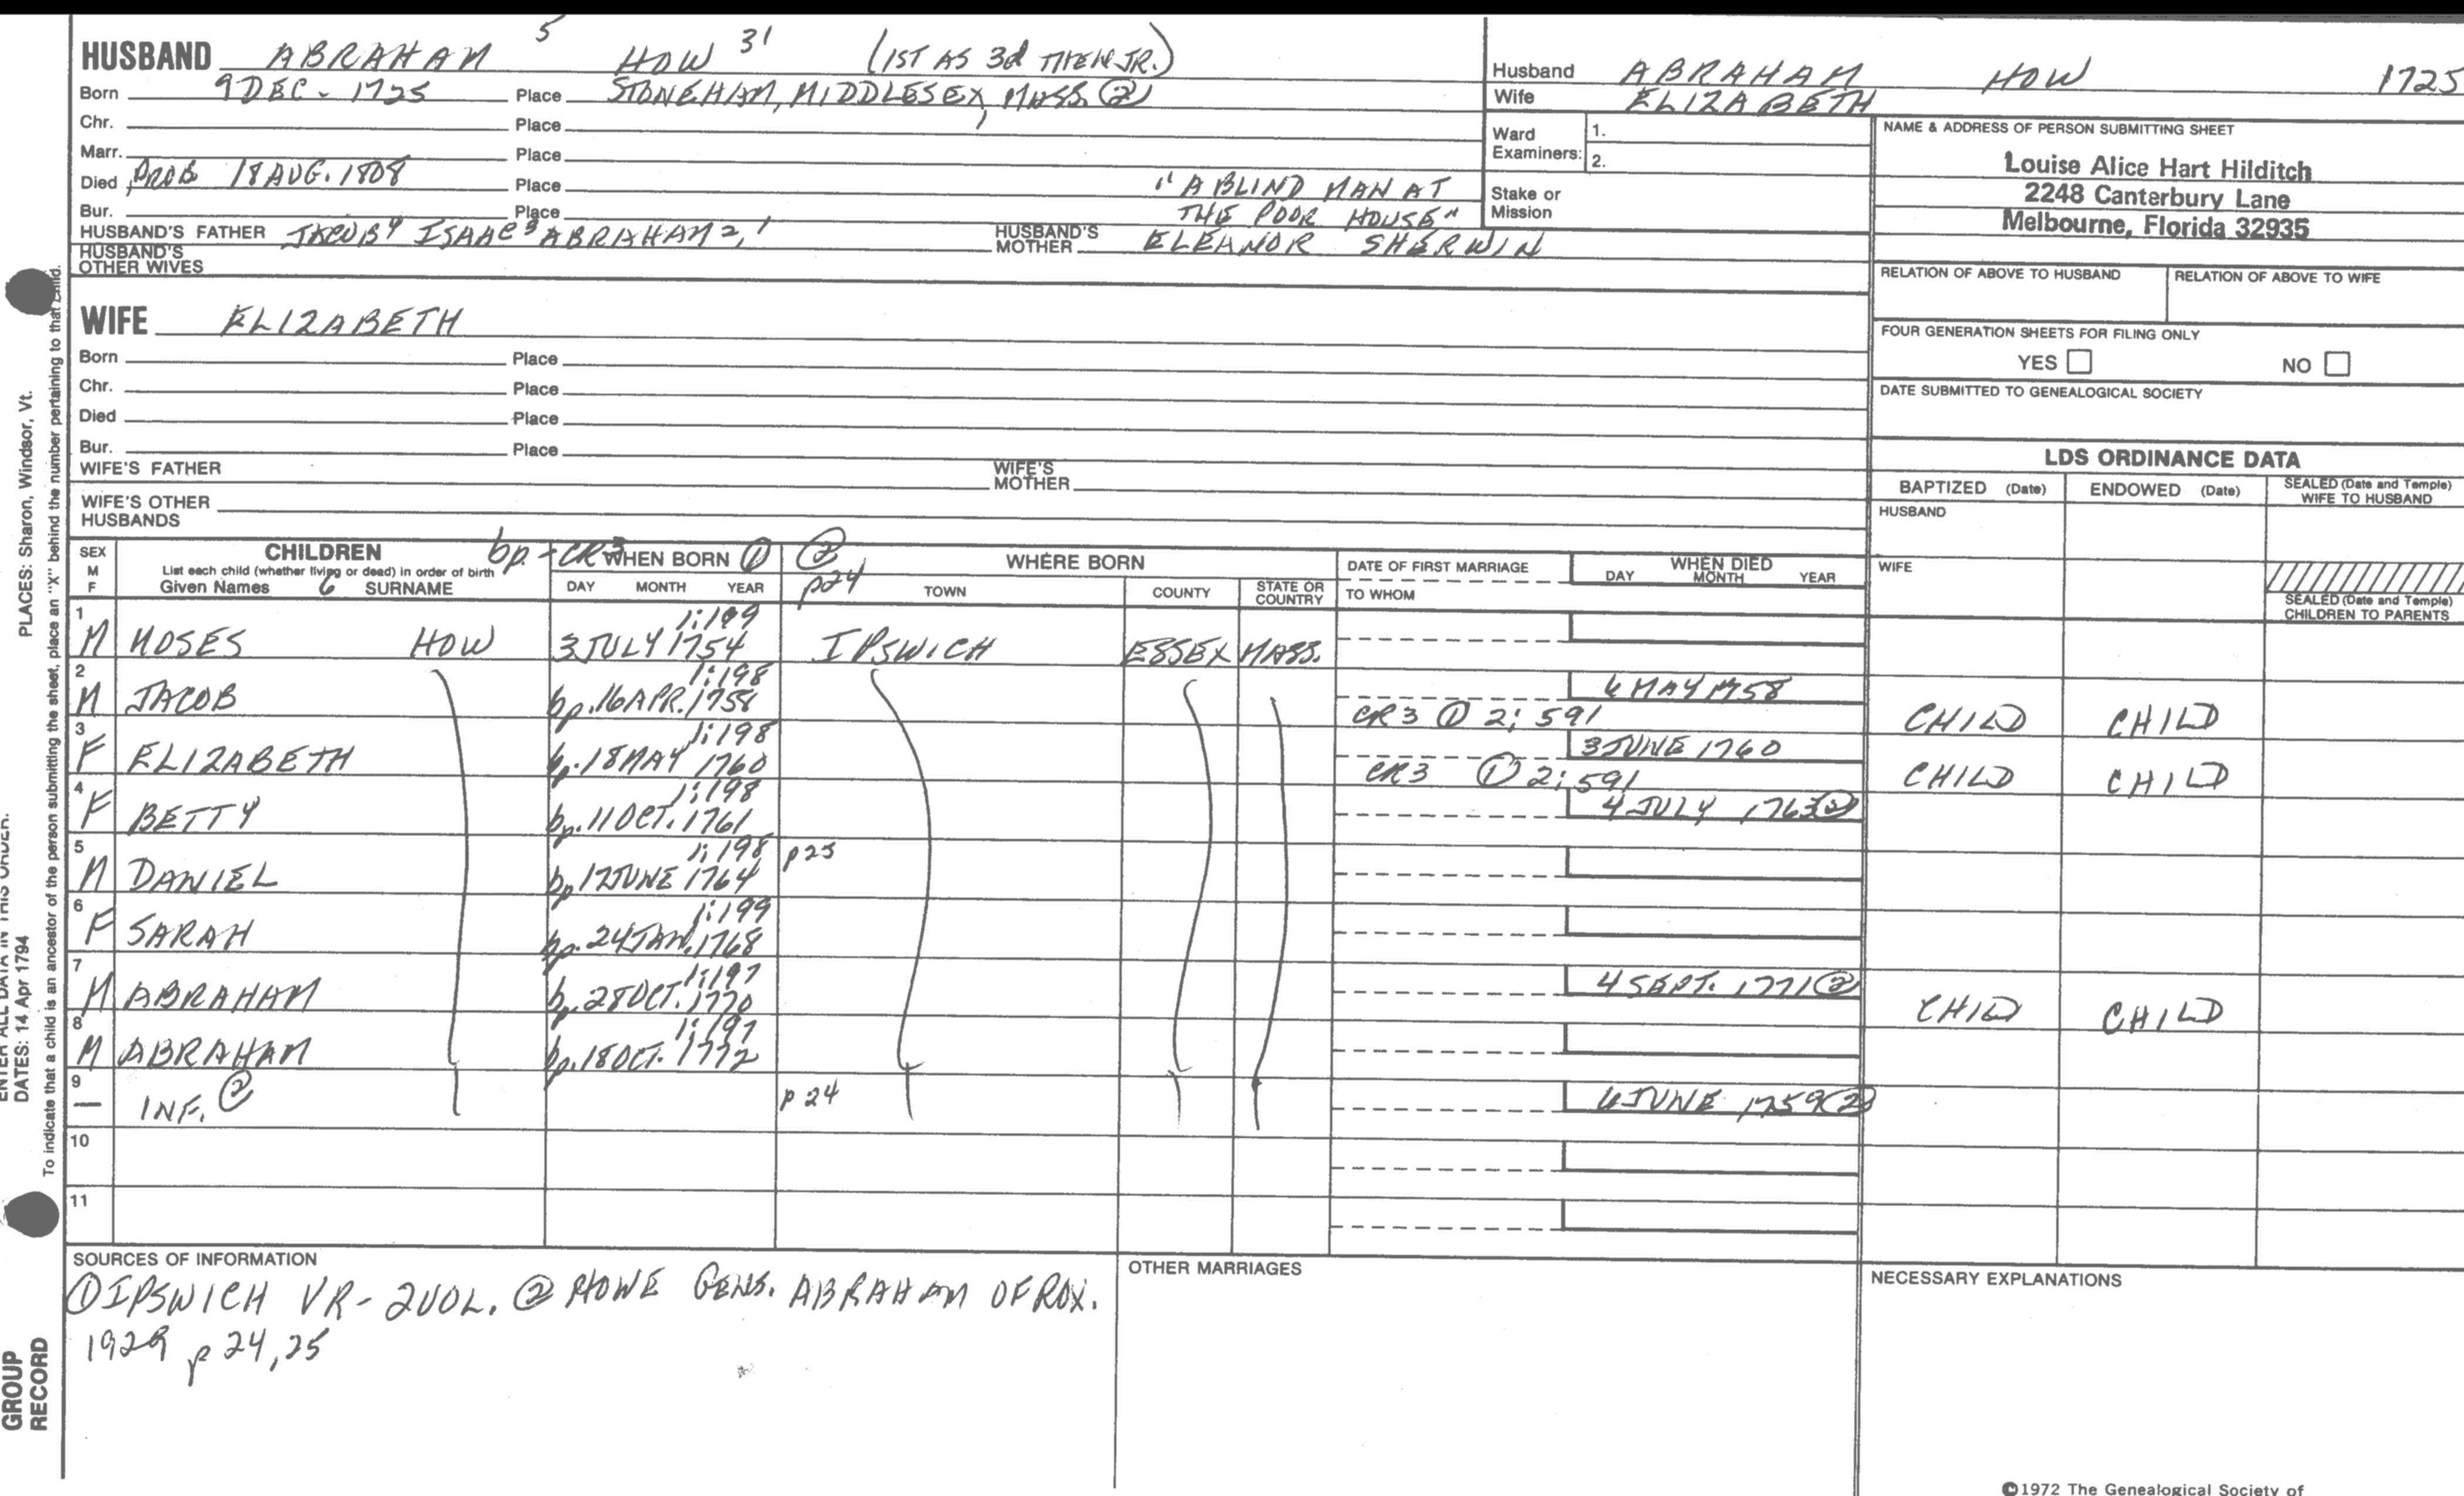 HUSBAND ABRAHAM 5 HOW 31 (1ST AS 3d THEN JR.)
Born 9 DEC - 1725 Place STONEHAM, MIDDLESEX, MASS. ②
Chr. Place
Marr. Place
Died PROB 18 AUG. 1808 Place "A BLIND MAN AT
Bur. Place THE POOR HOUSE"
HUSBAND'S FATHER JACOB4 ISAAC3 ABRAHAM2,1 HUSBAND'S MOTHER ELEANOR SHERWIN
HUSBAND'S OTHER WIVES
WIFE ELIZABETH
Born Place
Chr. Place
Died Place
Bur. Place
WIFE'S FATHER WIFE'S MOTHER
WIFE'S OTHER HUSBANDS
Husband ABRAHAM HOW 1725
Wife ELIZABETH
Ward Examiners: 1.
2.
Stake or Mission
NAME & ADDRESS OF PERSON SUBMITTING SHEET
Louise Alice Hart Hilditch
2248 Canterbury Lane
Melbourne, Florida 32935
RELATION OF ABOVE TO HUSBAND RELATION OF ABOVE TO WIFE
FOUR GENERATION SHEETS FOR FILING ONLY
YES NO
DATE SUBMITTED TO GENEALOGICAL SOCIETY
LDS ORDINANCE DATA
BAPTIZED (Date) ENDOWED (Date) SEALED (Date and Temple) WIFE TO HUSBAND
HUSBAND
WIFE
SEALED (Date and Temple) CHILDREN TO PARENTS
SEX M F CHILDREN bp. - CR3 WHEN BORN ① ② p24 WHERE BORN DATE OF FIRST MARRIAGE WHEN DIED
List each child (whether living or dead) in order of birth
Given Names 6 SURNAME DAY MONTH YEAR TOWN COUNTY STATE OR COUNTRY TO WHOM DAY MONTH YEAR
1 1:199
M MOSES HOW 3 JULY 1754 IPSWICH ESSEX MASS.
2 1:198 6 MAY 1758
M JACOB bp. 16 APR. 1758 CR3 ① 2:591 CHILD CHILD
3 1:198 3 JUNE 1760
F ELIZABETH bp. 18 MAY 1760 CR3 ① 2:591 CHILD CHILD
4 1:198 4 JULY 1763 ②
F BETTY bp. 11 OCT. 1761
5 1:198 p25
M DANIEL bp 17 JUNE 1764
6 1:199
F SARAH bp. 24 JAN. 1768
7 1:197 4 SEPT. 1771 ②
M ABRAHAM bp. 28 OCT. 1770 CHILD CHILD
8 1:197
M ABRAHAM bp. 18 OCT. 1772
9
— INF. ② p 24 6 JUNE 1759 ②
10
11
SOURCES OF INFORMATION
① IPSWICH VR - 2 VOL. ② HOWE GENS. ABRAHAM OF ROX.
1929 p 24, 25
OTHER MARRIAGES
NECESSARY EXPLANATIONS
©1972 The Genealogical Society of
PLACES: Sharon, Windsor, Vt.
To indicate that a child is an ancestor of the person submitting the sheet, place an "X" behind the number pertaining to that child.
ENTER ALL DATA IN THIS ORDER:
DATES: 14 Apr 1794
GROUP
RECORD